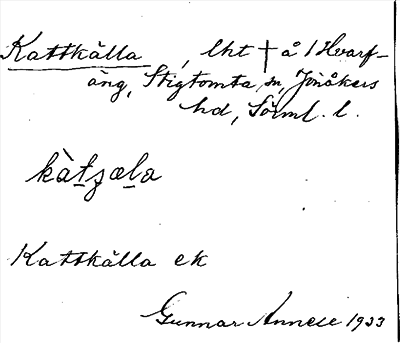 Kattkälla , lht † å 1 Hvarf-
äng, Stigtomta sn, Jönåkers
hd, Sörml. l.
kàtʒæla
Kattkälla ek
Gunnar Annese 1933